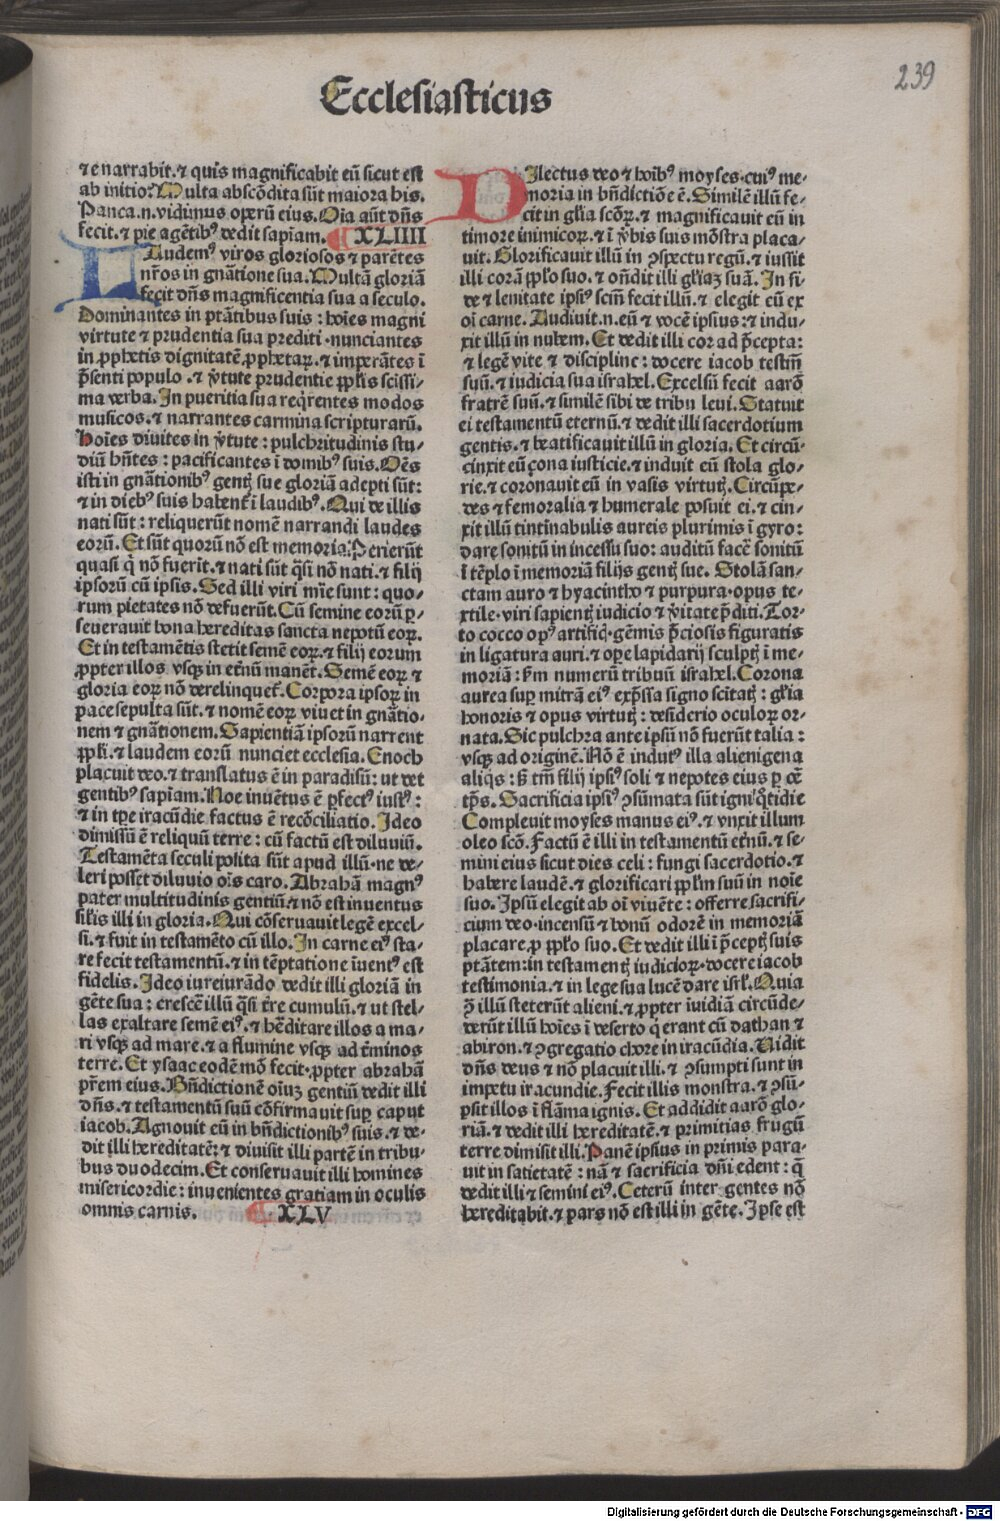 239
Ecclesiasticus
⁊ enarrabit.⁊ quis magnificabit eū sicut est
ab initio? Multa abscōdita sūt maiora his.
Pauca.n.vidimus operū eius. Oīa aūt dn̄s
fecit.⁊ pie agētibꝰ dedit sapīam. XLIIII
LAudemꝰ viros gloriosos ⁊ parētes
nr̄os in gnātione sua. Multā gloriā
fecit dn̄s magnificentia sua a seculo.
Dominantes in ptātibus suis : hoīes magni
virtute ⁊ prudentia sua prediti · nunciantes
in ꝓphetis dignitatē ꝓphetaꝝ.⁊ imperātes ī
p̄senti populo .⁊ v̄tute prudentie ppl̄is scissi/
ma verba. In pueritia sua reqͥrentes modos
musicos.⁊ narrantes carmina scripturarū.
Hoīes divites in v̄tute : pulchritudinis stu/
diū hn̄tes : pacificantes ī domibꝰ suis. Oēs
isti in gnātionibꝰ gentꝭ sue gloriā adepti sūt:
⁊ in diebꝰ suis habent̄ ī laudibꝰ. Qui de illis
nati sūt : reliquerūt nomē narrandi laudes
eorū. Et sūt quorū nō est memoria: Perierūt
quasi qͥ nō fuerīt.⁊ nati sūt qͣsi nō nati.⁊ filij
ipsorū cū ipsis. Sed illi viri mīe sunt : quo/
rum pietates nō defuerūt. Cū semine eorū ꝑ/
severauit bona hereditas sancta nepotū eoꝝ.
Et in testamētis stetit semē eoꝝ.⁊ filij eorum
ꝓpter illos vsqꝫ in et̄nū manēt. Semē eoꝝ ⁊
gloria eoꝝ nō derelinquet̄. Corpora ipsoꝝ in
pace sepulta sūt.⁊ nomē eoꝝ viuet in gnātio/
nem ⁊ gnātionem. Sapientiā ipsorū narrent
ppl̄i.⁊ laudem eorū nunciet ecclesia. Enoch
placuit deo.⁊ translatus ē in paradisū: ut det
gentibꝰ sapīam. Noe inuētus ē ꝑfectꝰ iustꝰ :
⁊ in tp̄e iracūdie factus ē recōciliatio. Ideo
dimissū ē reliquū terre : cū factū est diluuiū.
Testamēta seculi posita sūt apud illū · ne de/
leri posset diluuio oīs caro. Abrahā magnꝰ
pater multitudinis gentiū.⁊ nō est inuentus
sil̄is illi in gloria. Qui cōseruauit legē excel/
si.⁊ fuit in testamēto cū illo. In carne eiꝰ sta/
re fecit testamentū.⁊ in tēptatione īuentꝰ est
fidelis. Ideo iureiurādo dedit illi gloriā in
gēte sua : crescē illū qͣsi t̄re cumulū.⁊ ut stel/
las exaltare semē eiꝰ.⁊ h̄editare illos a ma/
ri vsqꝫ ad mare.⁊ a flumine vsqꝫ ad t̄minos
terre. Et ysaac eodē mō fecit · ꝓpter abrahā
pr̄em eius. Bn̄dictionē oīuꝫ gentiū dedit illi
dn̄s.⁊ testamentū suū cōfirmauit suꝑ caput
iacob. Agnouit eū in bn̄dictionibꝰ suis.⁊ de/
dit illi hereditatē:⁊ diuisit illi partē in tribu/
bus duodecim. Et conseruauit illi homines
misericordie : inuenientes gratiam in oculis
omnis carnis. XLV
DIlectus deo ⁊ hoībꝰ moyses.cuiꝰ me/
moria in bn̄dictiōe ē. Similē illū fe/
cit in gl̄ia scōꝝ.⁊ magnificauit eū in
timore inimicoꝝ.⁊ ī v̄bis suis mōstra placa/
uit. Glorificauit illū in ꝯspectu regū.⁊ iussit
illi corā pplo̅ suo.⁊ on̄dit illi gl̄iaꝫ suā. In fi/
de ⁊ lenitate ipsiꝰ scm̄ fecit illū.⁊ elegit eū ex
oī carne. Audiuit.n.eū ⁊ vocē ipsius:⁊ indu/
xit illū in nubem. Et dedit illi cor ad p̄cepta:
⁊ legē vite ⁊ discipline : docere iacob testm̄
suū.⁊ iudicia sua israhel. Excelsū fecit aarō
fratrē suū.⁊ similē sibi de tribu leui. Statuit
ei testamentū eternū.⁊ dedit illi sacerdotium
gentis.⁊ beatificauit illū in gloria. Et circū/
cinxit eū çona iusticie.⁊ induit eū stola glo/
rie.⁊ coronauit eū in vasis virtutꝭ. Circūpe/
des ⁊ femoralia ⁊ humerale posuit ei.⁊ cin/
xit illū tintīnabulis aureis plurimis ī gyro:
dare sonitū in incessu suo: auditū facē sonitū
ī tēplo ī memoriā filijs gentꝭ sue. Stolā san/
ctam auro ⁊ hyacintho ⁊ purpura · opus te/
xtile · viri sapientꝭ iudicio ⁊ v̄itate p̄diti. Tor/
to cocco opꝰ artificͥ · gēmis p̄ciosis figuratis
in ligatura auri.⁊ oꝑe lapidarij sculptꝭ ī me/
moriā : ẜm numerū tribuū israhel. Corona
aurea suꝑ mitrā eiꝰ exp̄ssa signo scītatꝭ : gl̄ia
honoris ⁊ opus virtutꝭ : desiderio oculoꝝ or/
nata. Sic pulchra ante ipsū nō fuerūt talia :
vsqꝫ ad originē. Nō ē indutꝰ illa alienigena
aliqͥs : ẜ tm̄ filij ipsiꝰ soli ⁊ nepotes eius ꝑ oē
tp̄s. Sacrificia ipsiꝰ ꝯsūmata sūt igni qͦtidie
Compleuit moyses manus eiꝰ.⁊ vnxit illum
oleo scō. Factū ē illi in testamentū et̄nū.⁊ se/
mini eius sicut dies celi : fungi sacerdotio.⁊
habere laudē.⁊ glorificari pplm̄ suū in noīe
suo. Ipsū elegit ab oī viuēte : offerre sacrifi/
cium deo · incensū ⁊ bonū odorē in memoriā
placare ꝓ pplo̅ suo. Et dedit illi ī p̄ceptꝭ suis
ptātem: in testamentꝭ iudicioꝝ · docere iacob
testimonia.⁊ in lege sua lucē dare isrl̄. Quia
ꝯ̄ illū steterūt alieni.⁊ ꝓpter īuidiā circūde/
derūt illū hoīes ī deserto qͥ erant cū dathan ⁊
abiron.⁊ ꝯgregatio chore in iracūdia. Uidit
dn̄s deus ⁊ nō placuit illi.⁊ ꝯsumpti sunt in
impetu iracundie. Fecit illis monstra.⁊ ꝯsū/
psit illos ī flāma ignis. Et addidit aarō glo/
riā.⁊ dedit illi hereditatē.⁊ primitias frugū
terre dimisit illi. Panē ipsius in primis para/
uit in satietatē : nā ⁊ sacrificia dn̄i edent : q̄
dedit illi ⁊ semini eiꝰ. Ceterū inter gentes nō
hereditabit.⁊ pars nō est illi in gēte. Ipse est
Digitalisierung gefördert durch die Deutsche Forschungsgemeinschaft - DFG